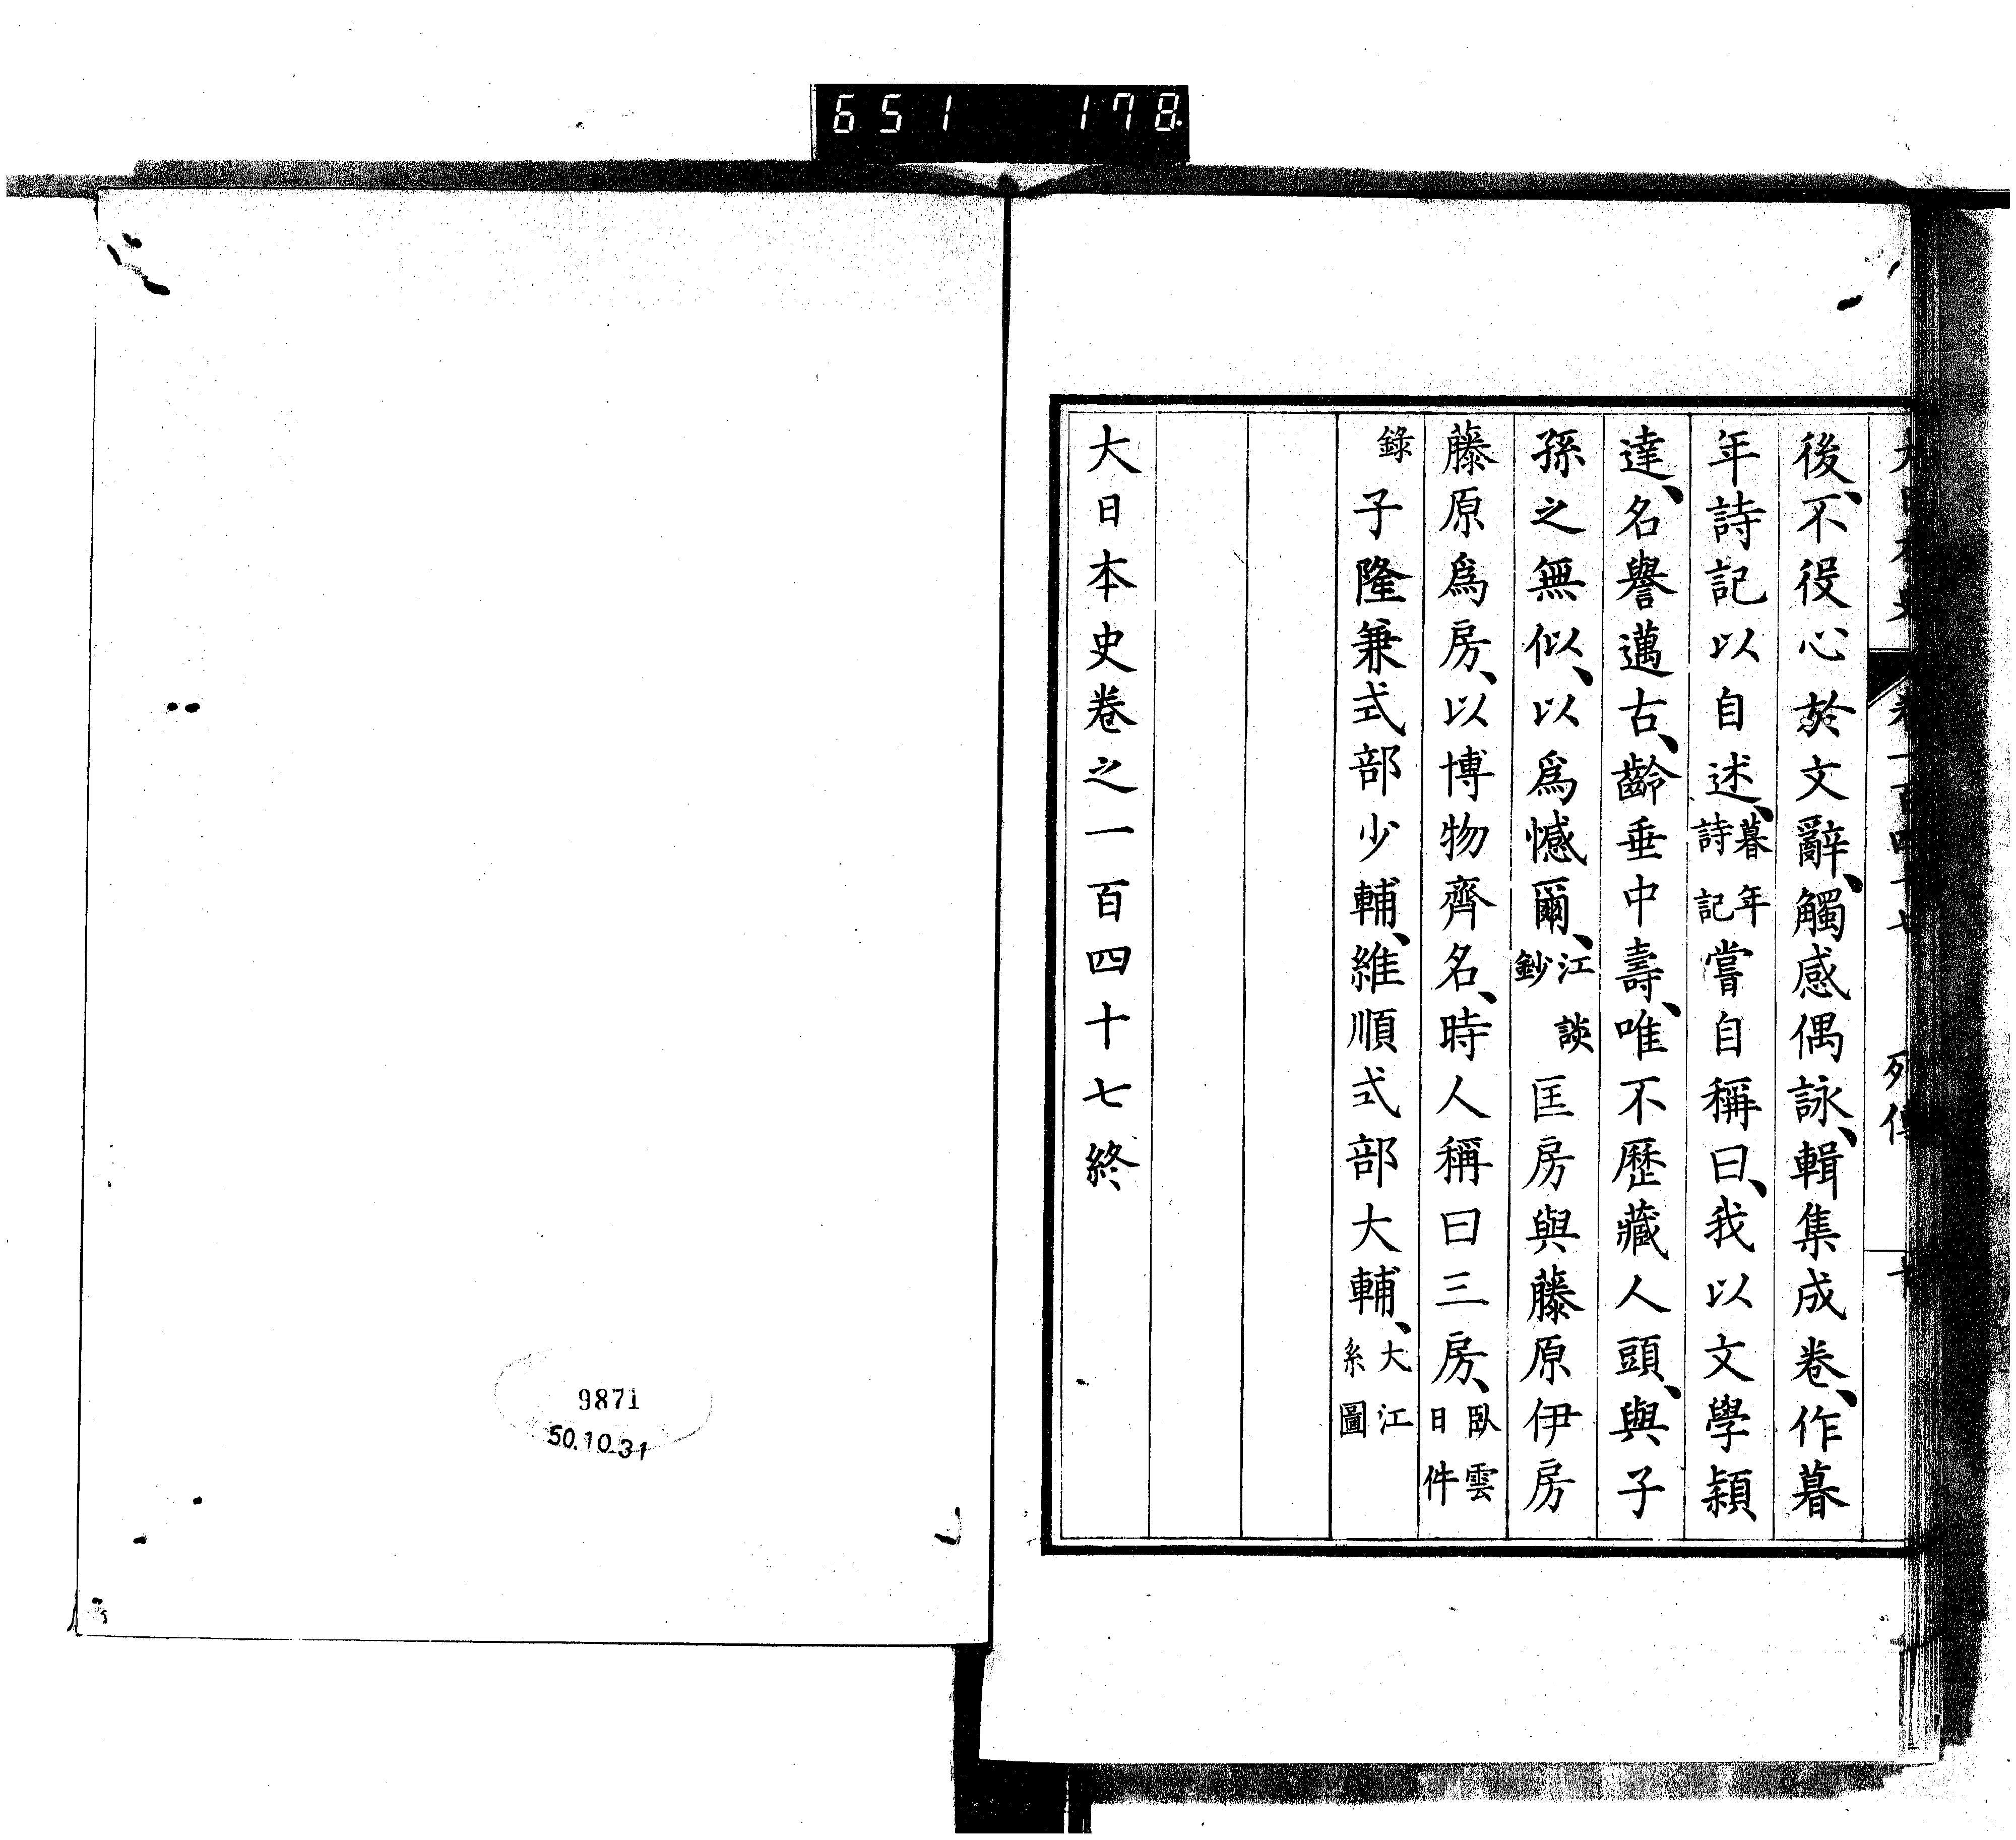 651 178
後、不役心於文辭、觸感偶詠、輯集成卷、作暮
年詩記以自述、暮年詩記嘗自稱曰、我以文學穎
達、名譽邁古、齡垂中壽、唯不歷藏人頭、與子
孫之無似、以爲憾爾、江談鈔匡房與藤原伊房
藤原爲房、以博物齊名、時人稱曰三房、臥雲日件
錄子隆兼式部少輔、維順式部大輔、大江系圖
大日本史卷之一百四十七終
9871
50.10.31